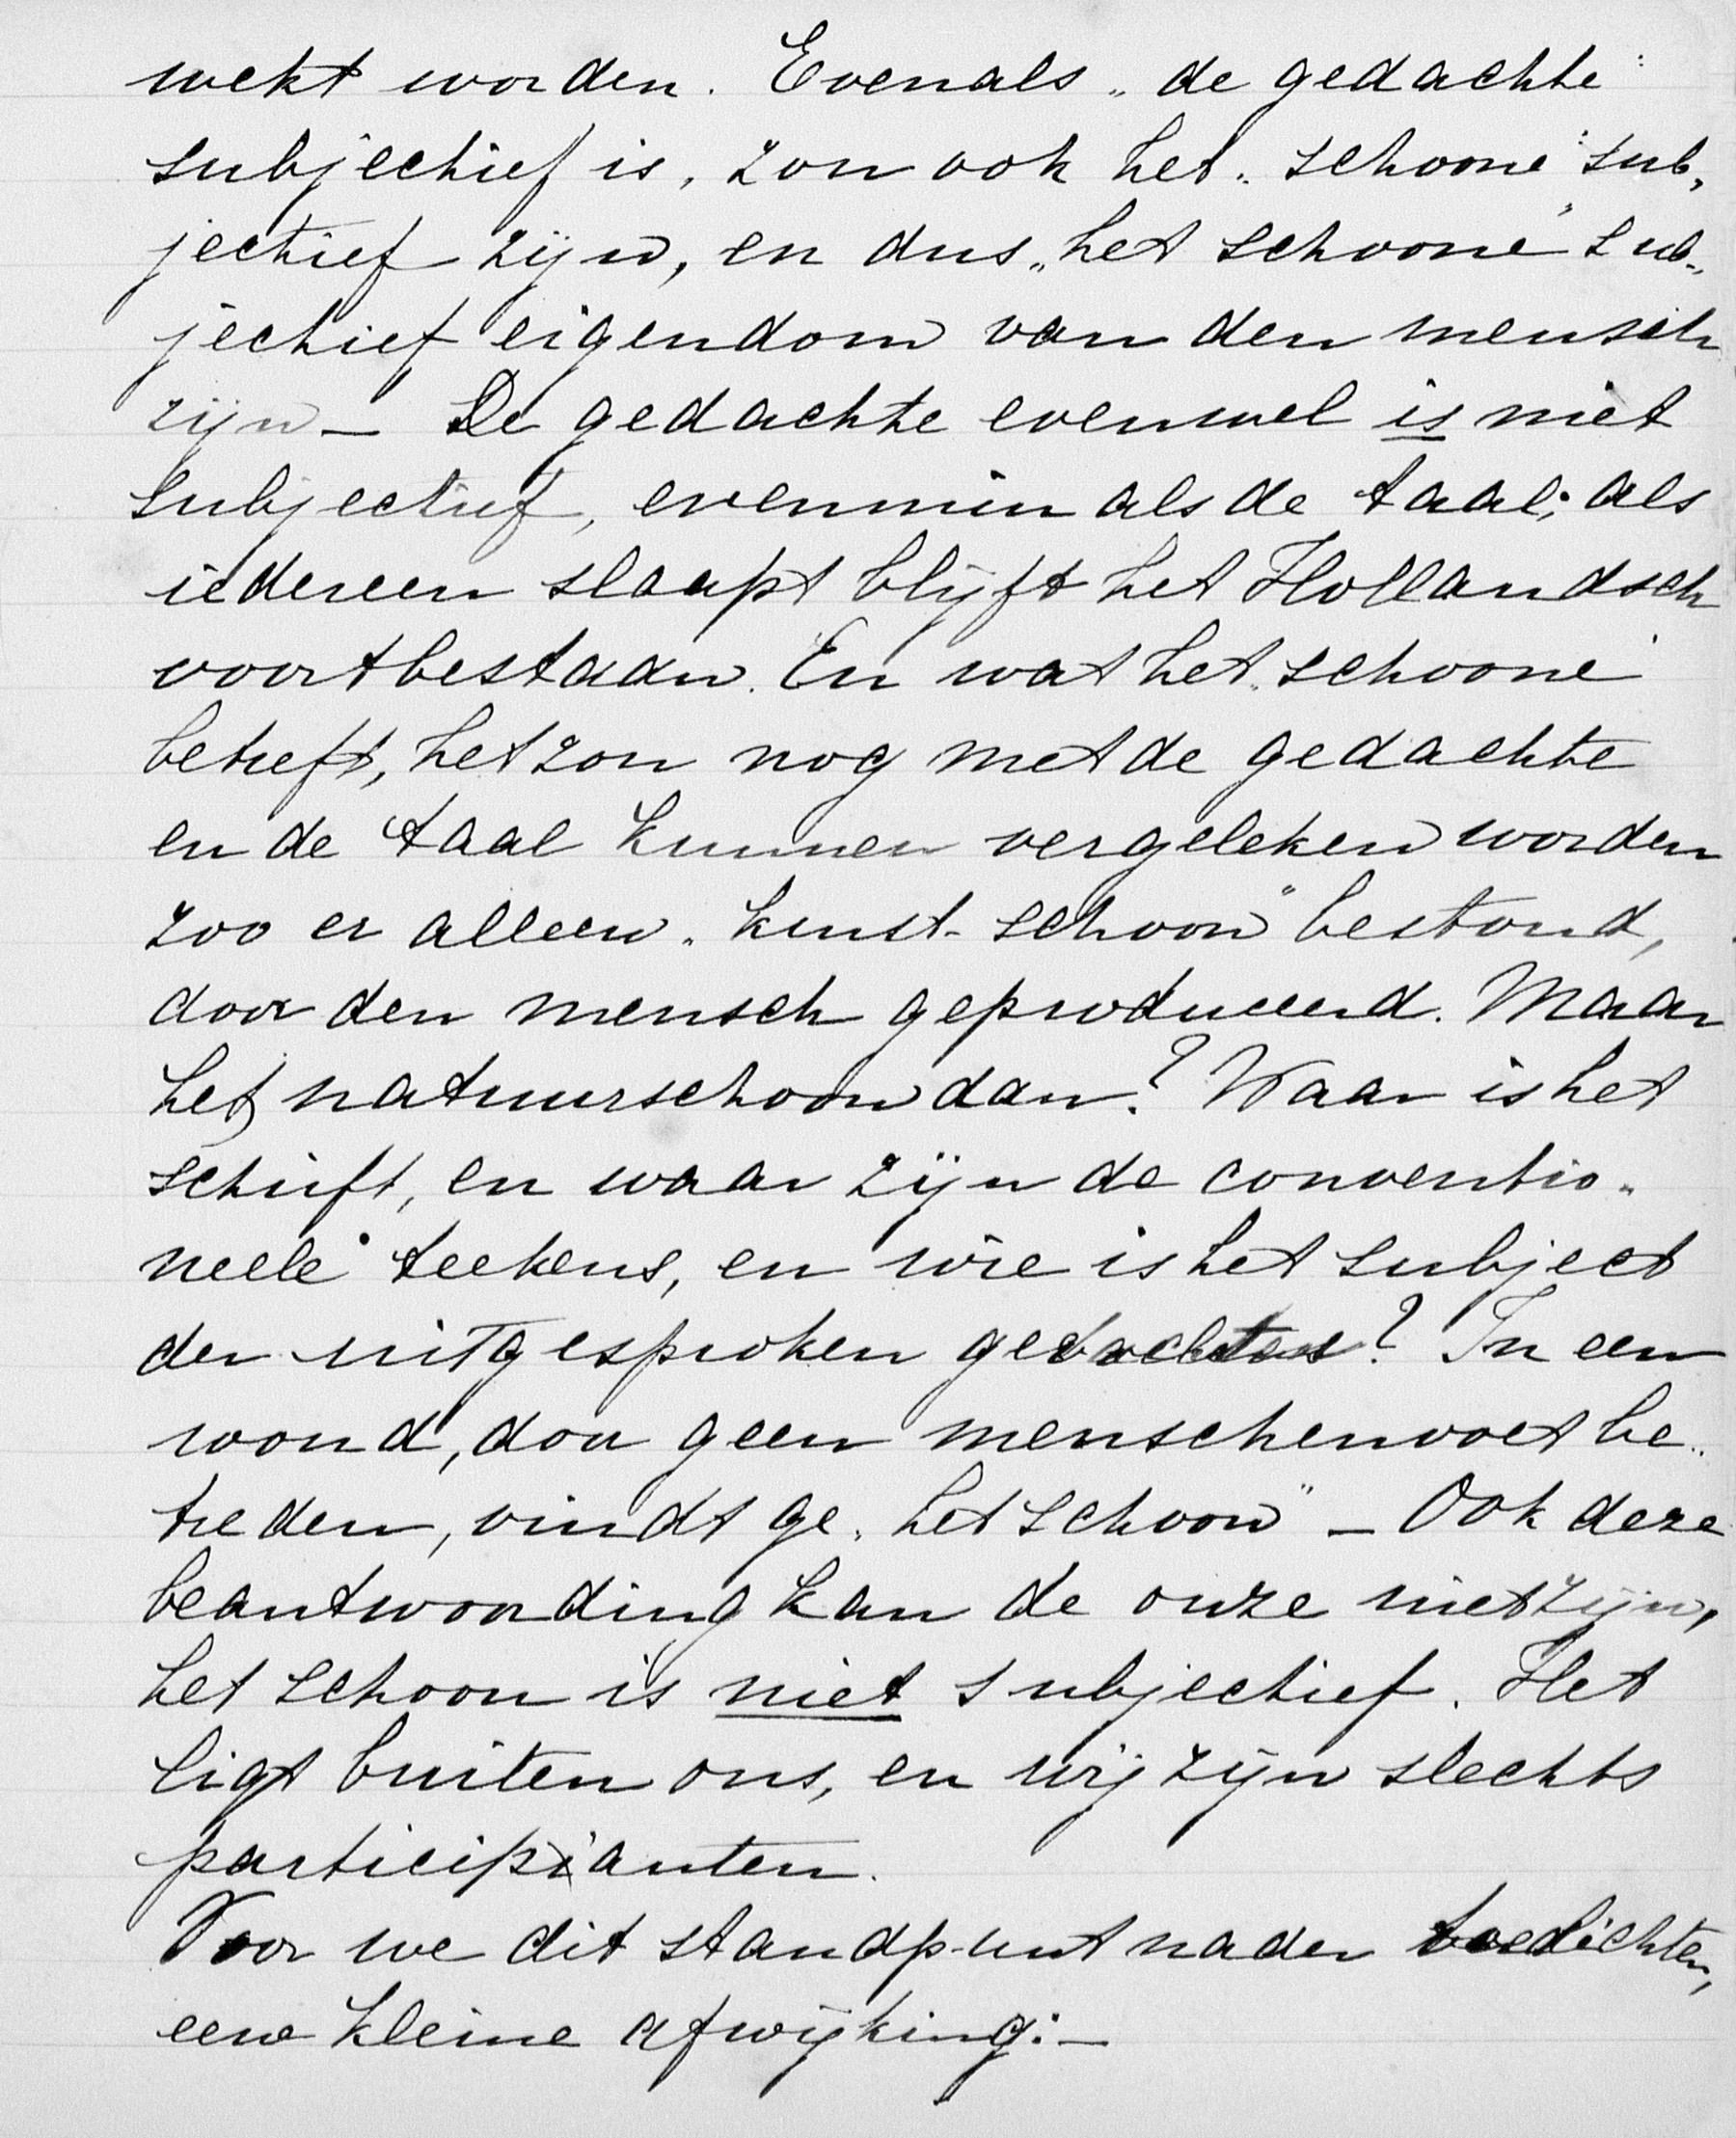 wekt worden. Evenals „de gedachte"
subjectief is, zou ook het „schoone" sub„
jectief zijn, en dus „het schoone" sub„
jectief eigendom van den mensch
zijn — De gedachte evenwel is niet
subjectief, evenmin als de taal; als
iedereen slaapt blijft het Hollandsch
voortbestaan. En wat het „schoone"
betreft, het zou nog met de gedachte
en de taal kunnen vergeleken worden
zoo er alleen „kunst-schoon" bestond,
door den mensch geproduceerd. Maar
het natuurschoon dan? Waar is het
schrift, en waar zijn de conventio„
neele teekens, en wie is het subject
der uitgesproken gedachtes? In een
woud, door geen menschenvoet be„
treden, vindt ge „het schoon" — Ook deze
beantwoording kan de onze niet zijn,
het schoon is niet subjectief. Het
ligt buiten ons, en wij zijn slechts
participanten.
Voor we dit standpunt nader toelichten,
eene kleine afwijking:—